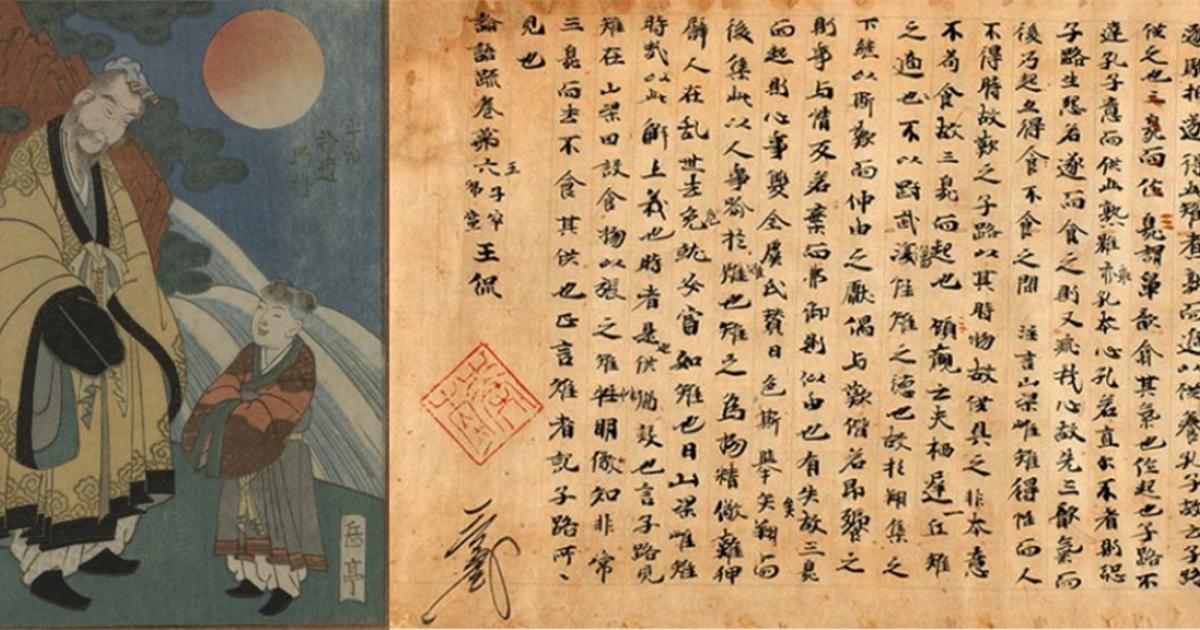 岳亭
供之也三臭而作臭謂鼻歆翕其氣也作起也子路不
達孔子意而供此熟雉乖孔本心孔若直尒不者則恐
子路生怨若遂而食之則又乖我心故先三歆氣而
後乃起亦得食不食之間 注言山梁雌雉得時而人
不得時故歎之子路以其時物故供具之非本意
不苟食故三臭而起也 顧歡云夫栖遲一丘雉
之適也不以剛武傷性雉之德也故於翔集之
下継以斯歎而仲由之獻偶与歎偕若即饗之
則事与情反若棄而弗御則似由也有失故三臭
而起則心事雙全虞氏贊曰色斯舉矣翔而
後集此以人事喻於雉也雉之為物精儆難狎
辟人在乱世去危就安當如雉也曰山梁雌雉
時哉以此解上義也時者是也供猶設也言子路見
雉在山梁因設食物以張之雉性明儆知非常
三臭而去不食其供也正言雉者記子路所
見也
論語疏卷第六 王侃